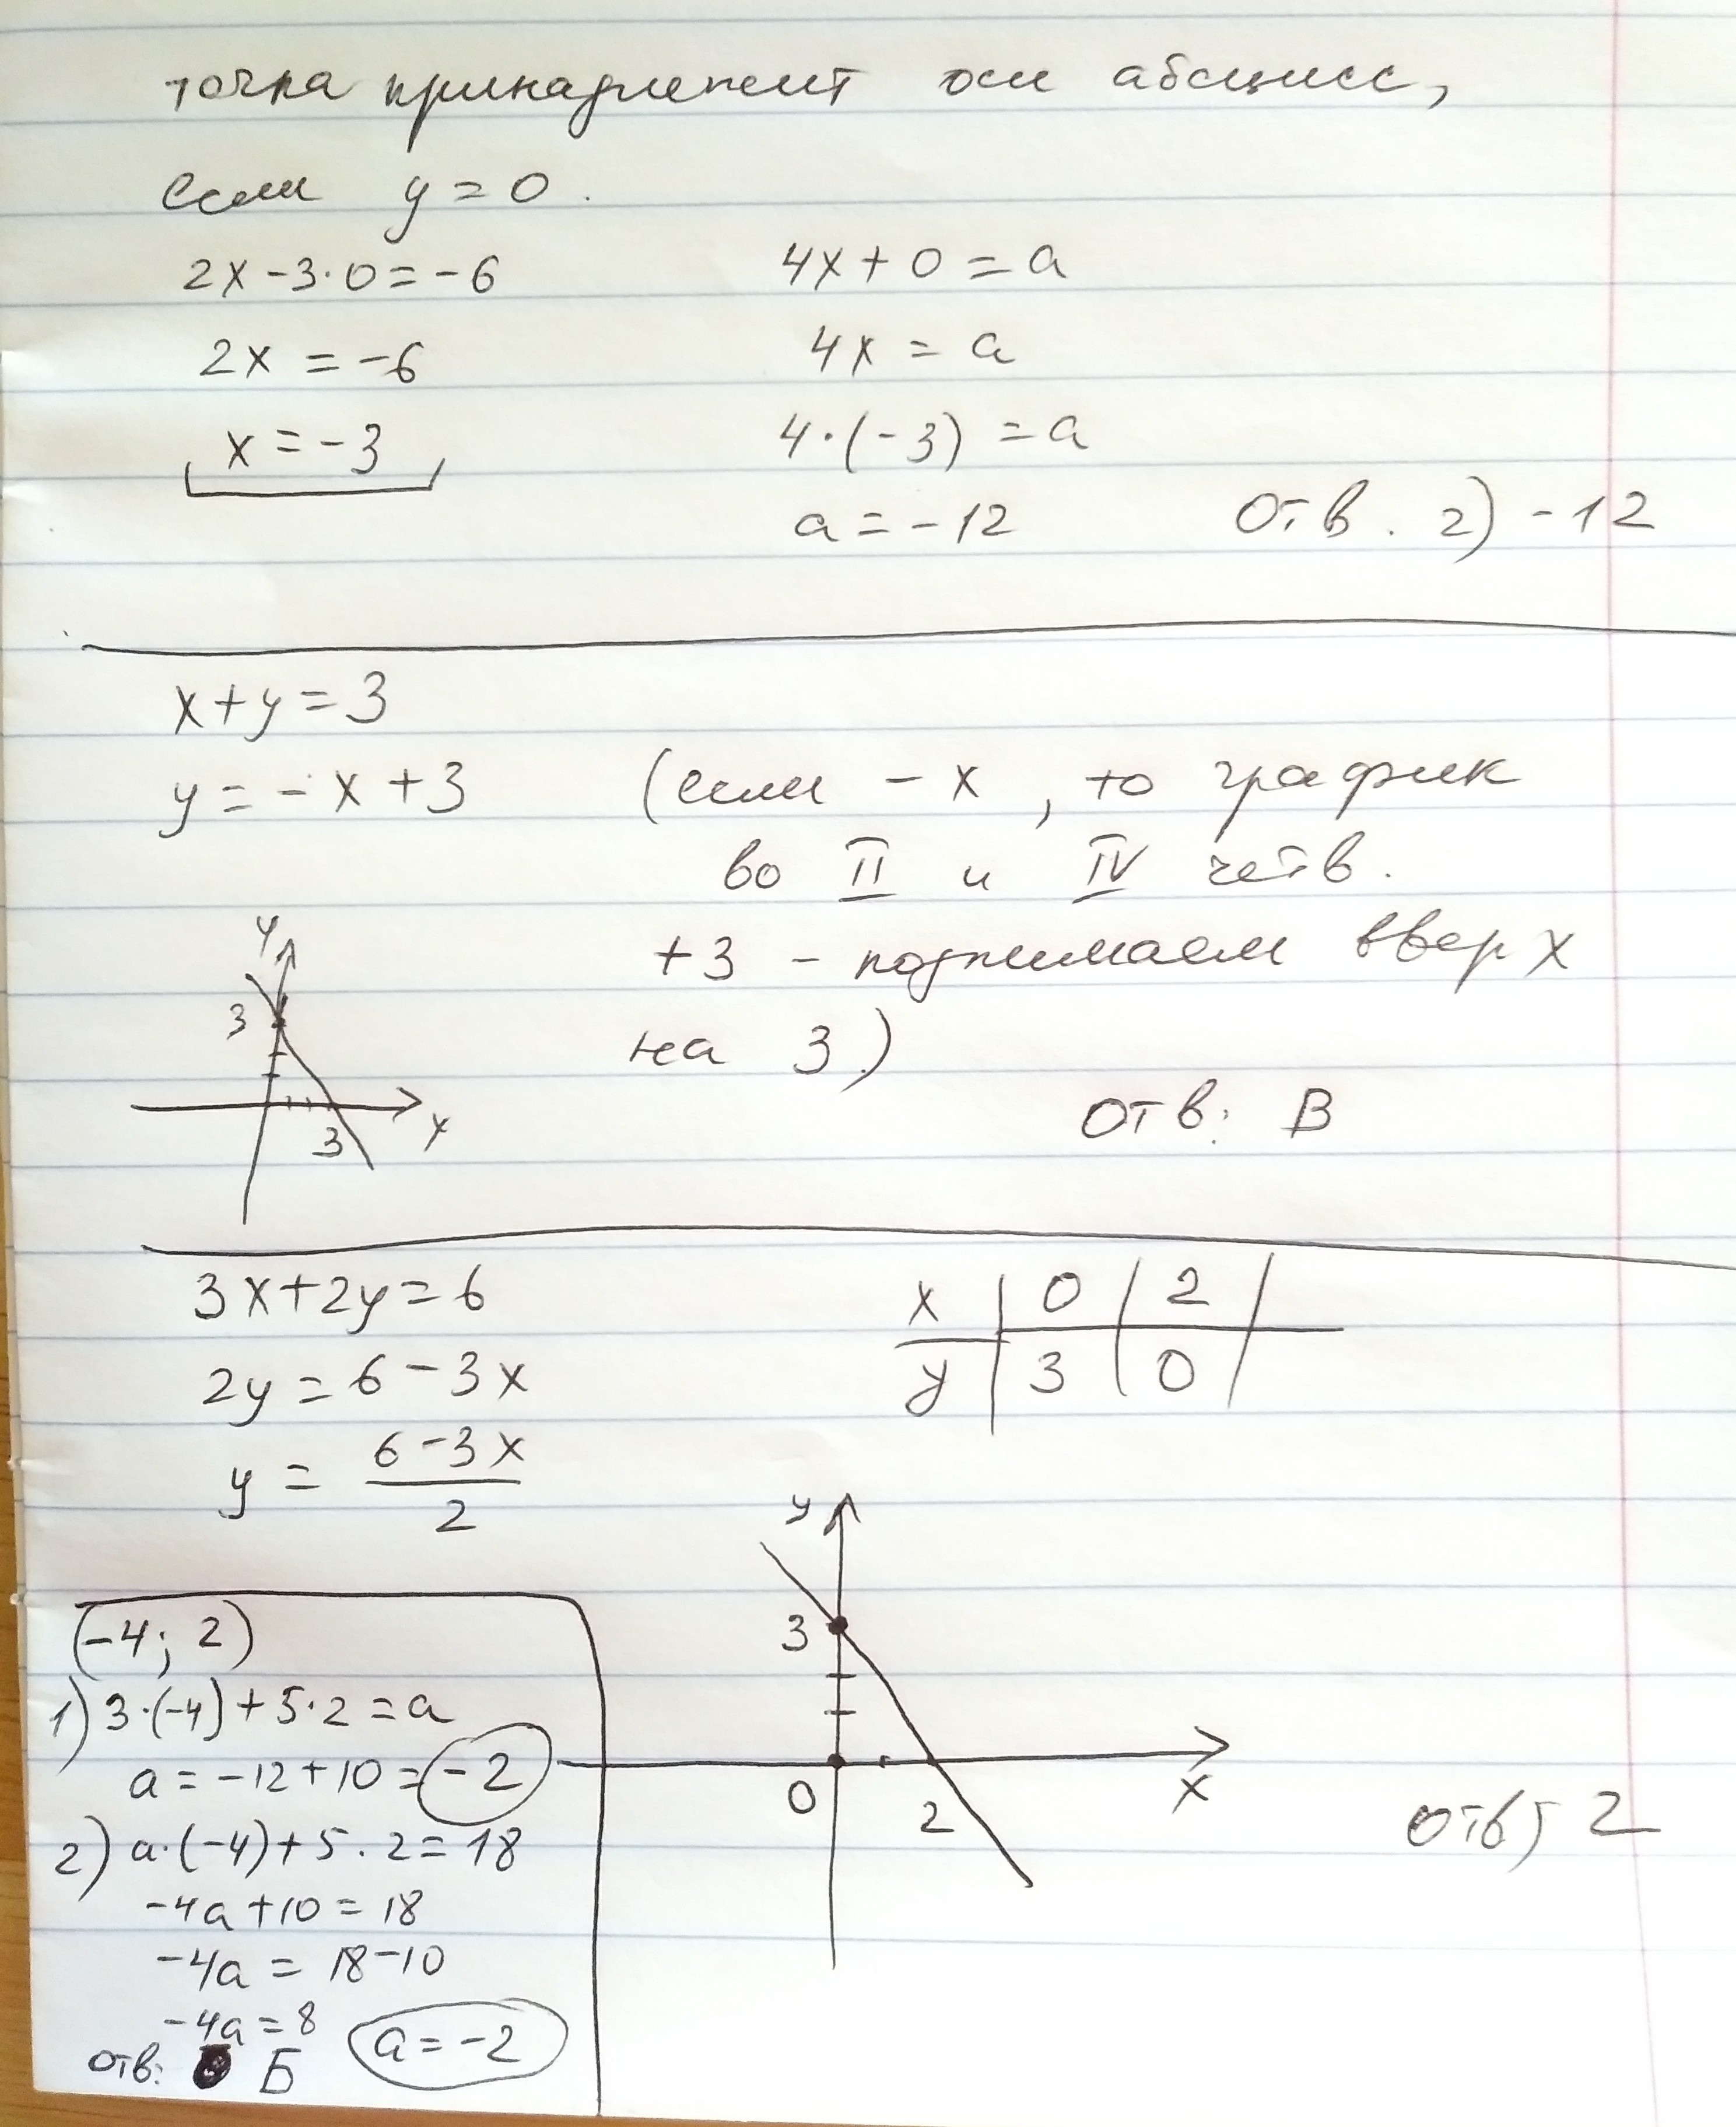 точка принадлежит оси абсцисс,
если y = 0.
2x - 3·0 = -6
2x = -6
x = -3
4x + 0 = a
4x = a
4·(-3) = a
a = -12
Отв. г) -12
x + y = 3
y = -x + 3
(если -x, то график
во II и IV четв.
+3 - поднимаем вверх
на 3.)
y
3
3
x
Отв: В
3x + 2y = 6
2y = 6 - 3x
y = (6 - 3x)/2
x | 0 | 2 |
y | 3 | 0 |
y
3
0
2
x
отв: г
(-4; 2)
1) 3·(-4) + 5·2 = a
a = -12 + 10 = -2
2) a·(-4) + 5·2 = 18
-4a + 10 = 18
-4a = 18 - 10
-4a = 8
a = -2
отв: Б